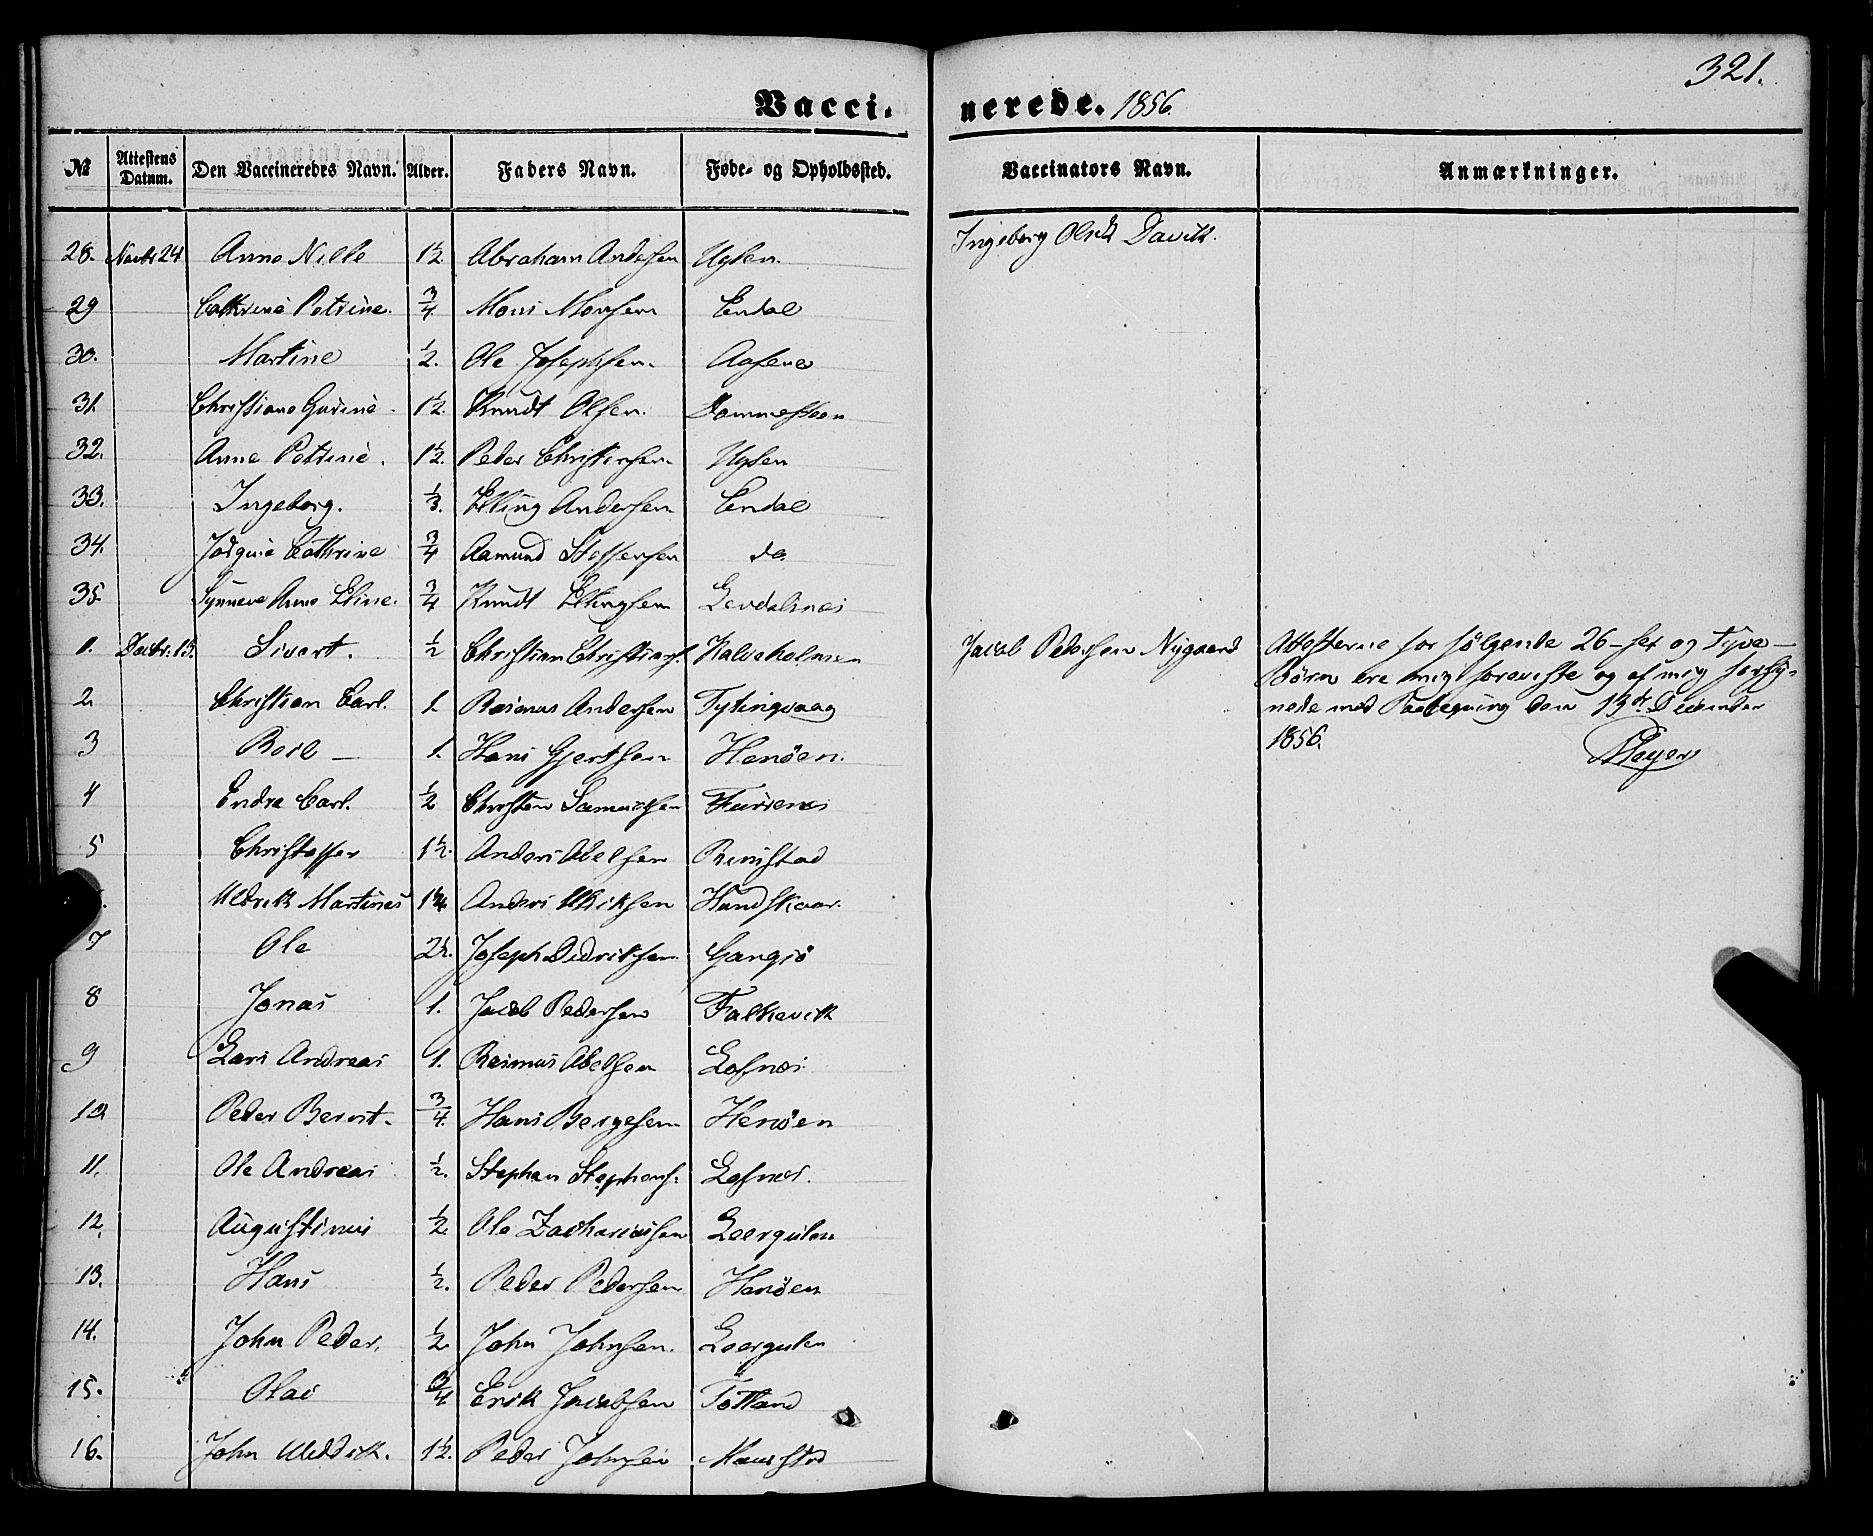 321.
Vacci- nerede. 1856.
№ Attestens Datum. Den Vaccineredes Navn. Alder. Faders Navn. Føde- og Opholdssted. Vaccinators Navn. Anmærkninger.
28. Novbr 24 Anne Nille 1½ Abraham Andersen Uglen. Ingeborg Olsdt Davik.
29 Cathrine Petrine. ¾ Mons Monsen Endal
30. Martine ½. Ole Josephsen. Aasene
31. Christiane Gurine. 1½. Knudt Olsen.
32. Anne Petrine. 1½. Peder Christensen Uglen
33. Ingeborg. ⅓. Elling Andersen Endal
34. Cathrine ¾ Aamund Steffensen do
35. Synneve Anne Eline. ¾ Knudt Ellingsen
1. Decbr. 13. Sivert. ½ Christian Christians. Kalveholmen Jacob Pedersen Nygaard Attesterne for følgende 26 - sex og tyve -
Børn ere mig foreviste og af mig forsy-
nede med Paategning den 13de December
1856. Meyer
2. Christian Carl. 1. Rasmus Andersen Tytingvaag
3 Boel - 1. Hans Gjertsen Henøen.
4 Endre Carl. ½ Christen Samuelsen Furrenes
5 Christoffer 1½. Anders Abelsen Rimstad
Uldrik Martinus 1¼ Anders Ulriksen Hundskaar.
7 Ole 2½. Joseph Didriksen Gangsø
8 Jonas 1. Jacob Pedersen Falkevik
9 Lars Andreas 1. Rasmus Abelsen Lofnes
10 Peder Bernt. ¾. Hans Børgesen Henøen
11. Ole Andreas ½. Stephen Stephens. Lofnes.
12. Augustinus ½. Ole Zachariasen Leergulen
13. Hans ½. Peder Pedersen Henøen
14. John Peder. ½. John Johnsen. Leergulen
15. Olai ¾ Erik Jacobsen Totland
16. John Uldrik. 1½. Peder Johnsen Maurstad